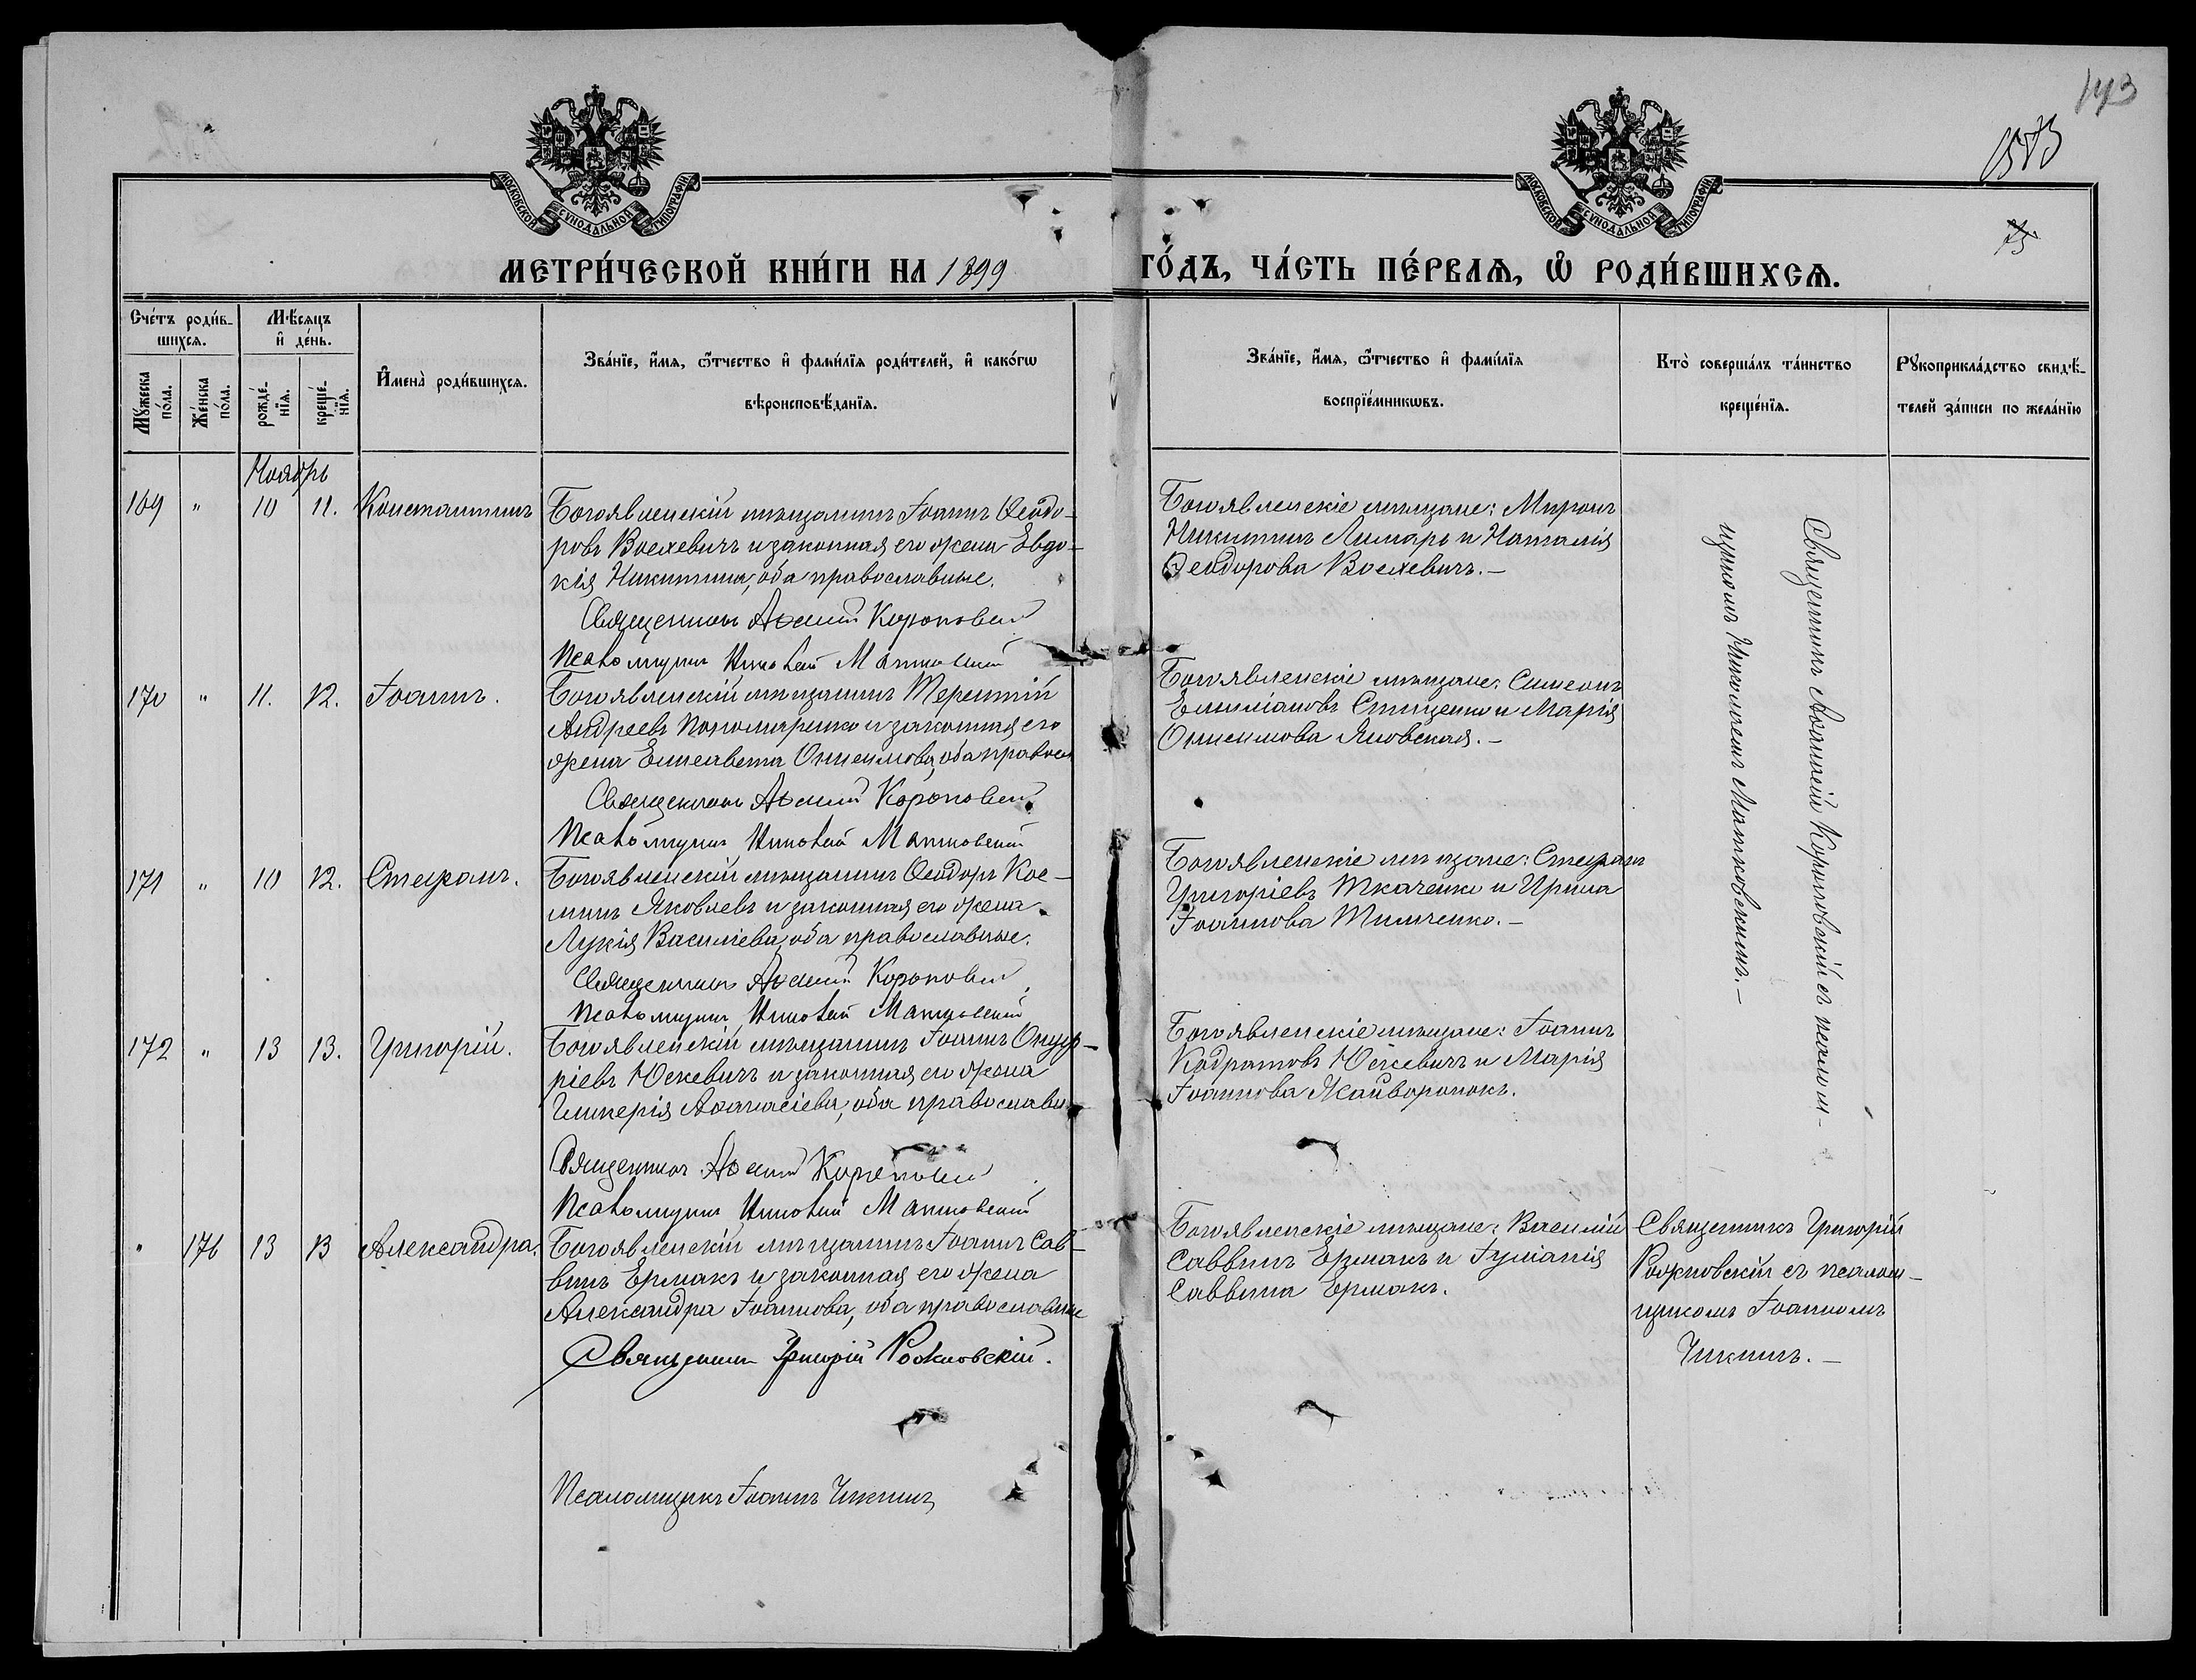 143
1573
75
МОСКОВСКОЙ СѴНОДАЛЬНОЙ ТИПОГРАФІИ
МОСКОВСКОЙ СѴНОДАЛЬНОЙ ТИПОГРАФІИ
МЕТРИ́ЧЕСКОЙ КНИ́ГИ НА 1899 ГО́ДЪ, ЧА́СТЬ ПЕ́РВАѦ, Ѽ РОДИ́ВШИХСѦ.
Сче́тъ роди́в-
шихсѧ.
Мꙋ́жеска по́ла.
Же́нска по́ла.
Мѣ́сяцъ
и҆ де́нь.
рожде́-
нїѧ.
креще́-
нїѧ.
И҆мена̀ роди́вшихсѧ.
Зва́нїе, и҆́мя, ѻ҆́тчество и҆ фами́лїя роди́телей, и҆ како́гѡ
вѣроисповѣ́данїя.
Зва́нїе, и҆́мя, ѻ҆́тчество и҆ фами́лїя
воспрїе́мникѡвъ.
Кто̀ соверша́лъ та́инство
креще́нїя.
Рꙋкоприкла́дство свидѣ́-
телей за́писи по жела́нїю
Ноябрь
169 " 10 11. Константинъ
Богоявленскій мѣщанинъ Іоаннъ Ѳеодо-
ровъ Воехевичъ и законная его жена Евдо-
кія Никитина, оба православные.
Священникъ Короновскій
Псаломщикъ Николай Матковскій
Богоявленскіе мѣщане: Миронъ
Никитинъ Лимарь и Наталія
Ѳеодорова Воехевичъ.-
170 " 11. 12. Іоаннъ.
Богоявленскій мѣщанинъ Терентій
Андреевъ Пономаренко и законная его
жена Елисавета Онисимова, оба правосл
Священникъ Короновскій
Псаломщикъ Николай Матковскій
Богоявленскіе мѣщане: Симеонъ
Емиліановъ Стиценко и Марія
Онисимова Яновская.-
171 " 10 12. Стефанъ.
Богоявленскій мѣщанинъ Ѳеодоръ Кос-
минъ Яковлевъ и законная его жена
Лукія Василіева, оба православные.
Священникъ Короновскій
Псаломщикъ Николай Матковскій
Богоявленскіе мѣщане: Стефанъ
Григоріевъ Ткаченко и Ирина
Іоаннова Тимченко.-
172 " 13 13. Григорій.
Богоявленскій мѣщанинъ Іоаннъ Онуф-
ріевъ Юскевичъ и законная его жена
Гликерія Аѳанасіева, оба православн
Священникъ Короновскій
Псаломщикъ Николай Матковскій
Богоявленскіе мѣщане: Іоаннъ
Кодратовъ Юскевичъ и Марія
Іоаннова Жайворонокъ.
Священникъ Короновскій съ псалом-
щикомъ Николаемъ Матковскимъ.-
" 176 13 13 Александра.
Богоявленскій мѣщанинъ Іоаннъ Сав-
винъ Ермакъ и законная его жена
Александра Іоаннова, оба православные
Священникъ Григорій Рожновскій.
Псаломщикъ Іоаннъ Чикинъ
Богоявленскіе мѣщане: Василій
Саввинъ Ермакъ и Іуліанія
Саввина Ермакъ.
Священникъ Григорій
Рожновскій съ псалом-
щикомъ Іоанномъ
Чикинъ.-